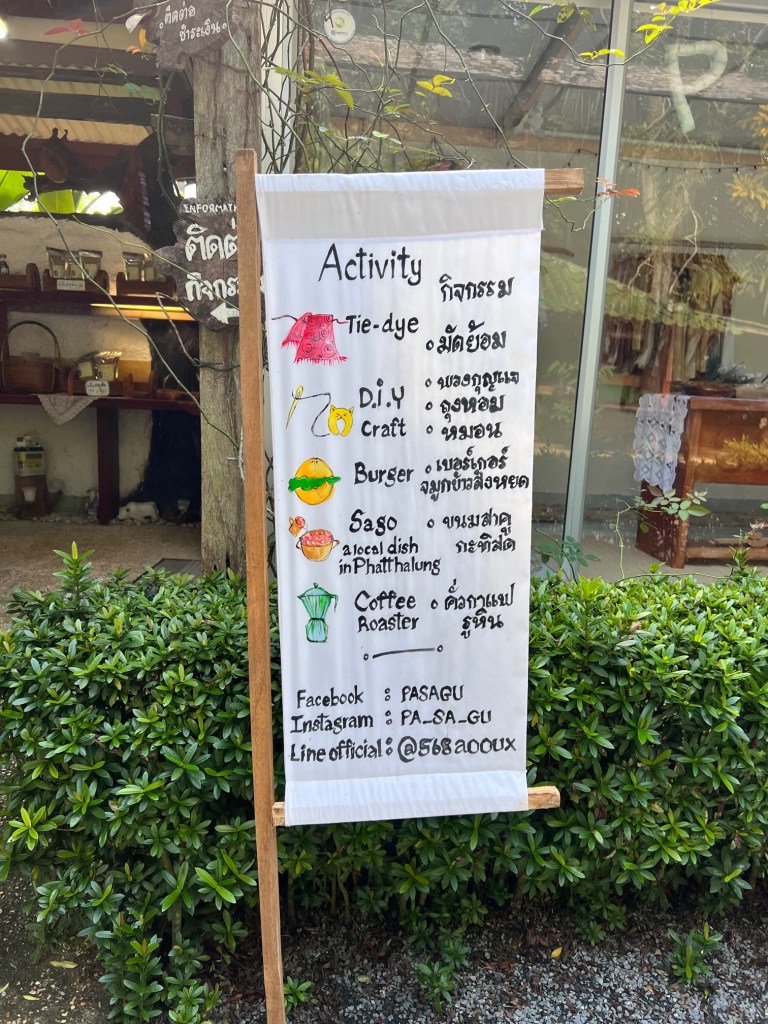 ติดต่อ
ชำระเงิน
INFORMATI
ติดต่
กิจกร
Activity
กิจกรรม
Tie-dye
มัดย้อม
D.i.Y
Craft
พวงกุญแจ
ถุงหอม
หมอน
Burger
เบอร์เกอร์
จมูกข้าวสังหยด
Sago
a local dish
in Phatthalung
ขนมสาคู
กะทิสด
Coffee
Roaster
คั่วกาแฟ
รูหิน
Facebook : PASAGU
Instagram : PA_SA_GU
Line official : @568aooux